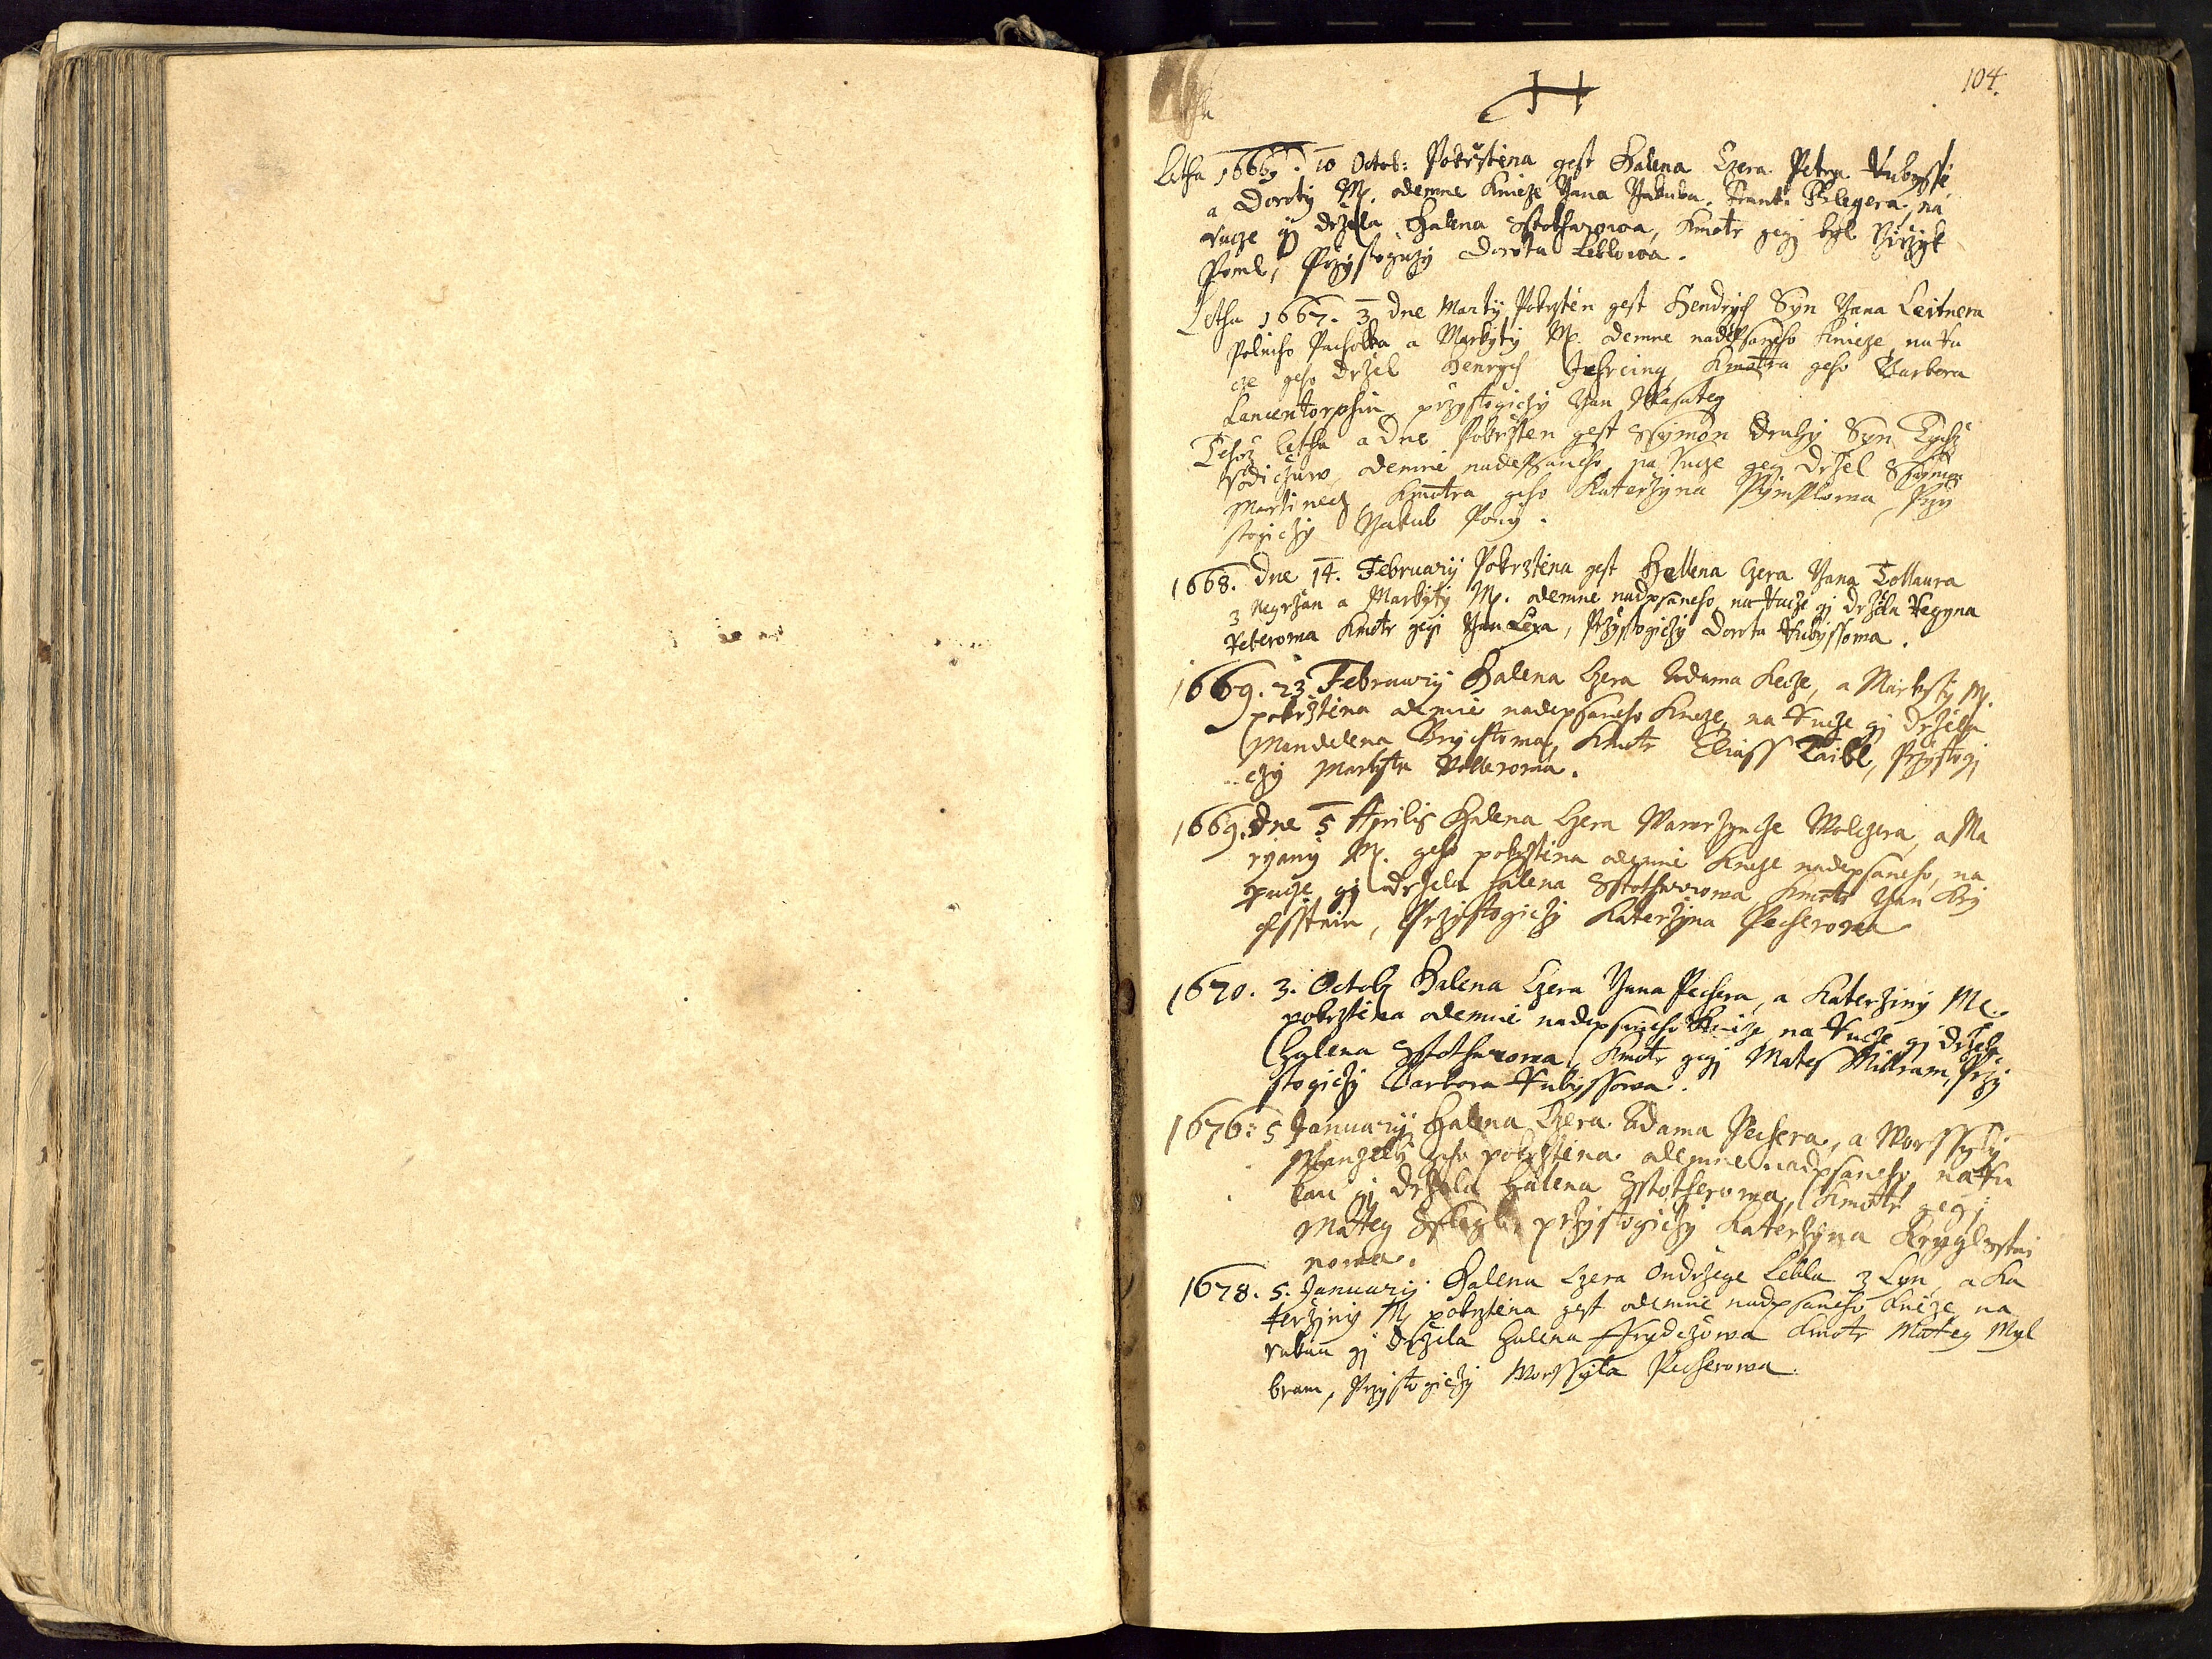 104.
H
Letha 1667. 10 Octob: Pokrztena gest Halena Czera Petra Kubyssy
a Doroty M. odemne Knieze Yana Yakuba, Frant: Plegera, na
rucze gj držela Halena Sstotherowa, Kmotr gegj byl Yiržyk
Poml, Przystogiczy Dorota Leblowa.
Letha 1667. 3 dne Marty Pokrzten gest Hendrych Syn Yana Leitnera
Polniho Pacholka a Markyty M. odemne nadepsaneho Knieze, na Ru
cze geho držel Henrych Kmotra geho Barbora
przystogiczy Yan
Tehož letha a dne Pokrzten gest Ssymon druhy Syn Tychž
Rodiczuw, odemne nadepsaneho, na Rucze geg držel Ssymon
Martinecz, Kmotra geho Katerzyna Przy
stogiczy Yakub
1668. dne 14. February Pokrztena gest Hellena Czera Yana Tollaura
z a Markyty M. odemne nadpsaneho na Rucze gj držela Regyna
Kmotr gegi Yan Lexa, Przystogiczy Dorota Kubyssowa.
1669. 23 February Halena Czera Adama Kecze, a Markyty M.
pokrztena odemne nadepsaneho Kneze, na Rucze gj držela
Mandelena Kmotr Eliass Taibl, Przystogj
czy Markyta
1669. dne 5 Aprilis Halena Czera Wawrzyncze Molczera, a Ma
ryany M. geho pokrztena odemne Kneze nadepsaneho, na
rucze gj držela Halena Sstotherowa Kmotr Yan Kry
glsstein, Przystogiczy Katerzyna Pecherowa
1670. 3. Octob Halena Czera Yana Pechera, a Katerziny M.
pokrztena odemne nadepsaneho Knieze, na Rucze gj držela
Halena Sstotherowa Kmotr gegj Mates Millram, Przy
stogiczy Barbora Kubyssowa.
1676: 5 January Halena Czera Adama Pechera, a Worssyly
Manzelk. geho pokrztena odemne nadpsaneho, na Ru
kau gj držela Halena Sstotherowa, Kmotr gegj
Mateg przystogiczy Katerzyna Kryglsstei
nowa.
1678. 5. January Halena Czera Ondržege Lebla z Lpn, a Ka
terziny M pokrztena gest odemne nadpsaneho Knieze na
rukau gj držela Halena Frydczowa Kmotr Mateg Myl
bram, Przystogiczy Worssyla Pecherowa.